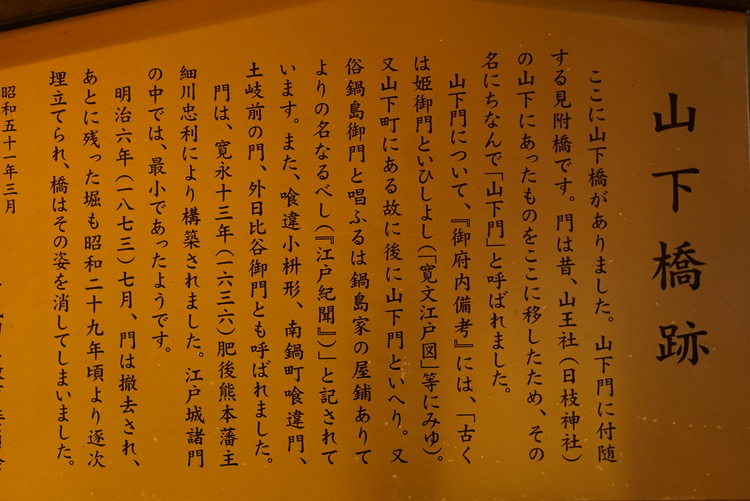 山下橋跡
ここに山下橋がありました。山下門に付随
する見附橋です。門は昔、山王社（日枝神社）
の山下にあったものをここに移したため、その
名にちなんで「山下門」と呼ばれました。
山下門について、『御府内備考』には、「古く
は姫御門といひしよし（「寛文江戸図」等にみゆ）。
又山下町にある故に後に山下門といへり。又
俗鍋島御門と唱ふるは鍋島家の屋鋪ありて
よりの名なるべし（『江戸紀聞』）」と記されて
います。また、喰違小枡形、南鍋町喰違門、
土岐前の門、外日比谷御門とも呼ばれました。
門は、寛永十三年（一六三六）肥後熊本藩主
細川忠利により構築されました。江戸城諸門
の中では、最小であったようです。
明治六年（一八七三）七月、門は撤去され、
あとに残った堀も昭和二十九年頃より逐次
埋立てられ、橋はその姿を消してしまいました。
昭和五十一年三月